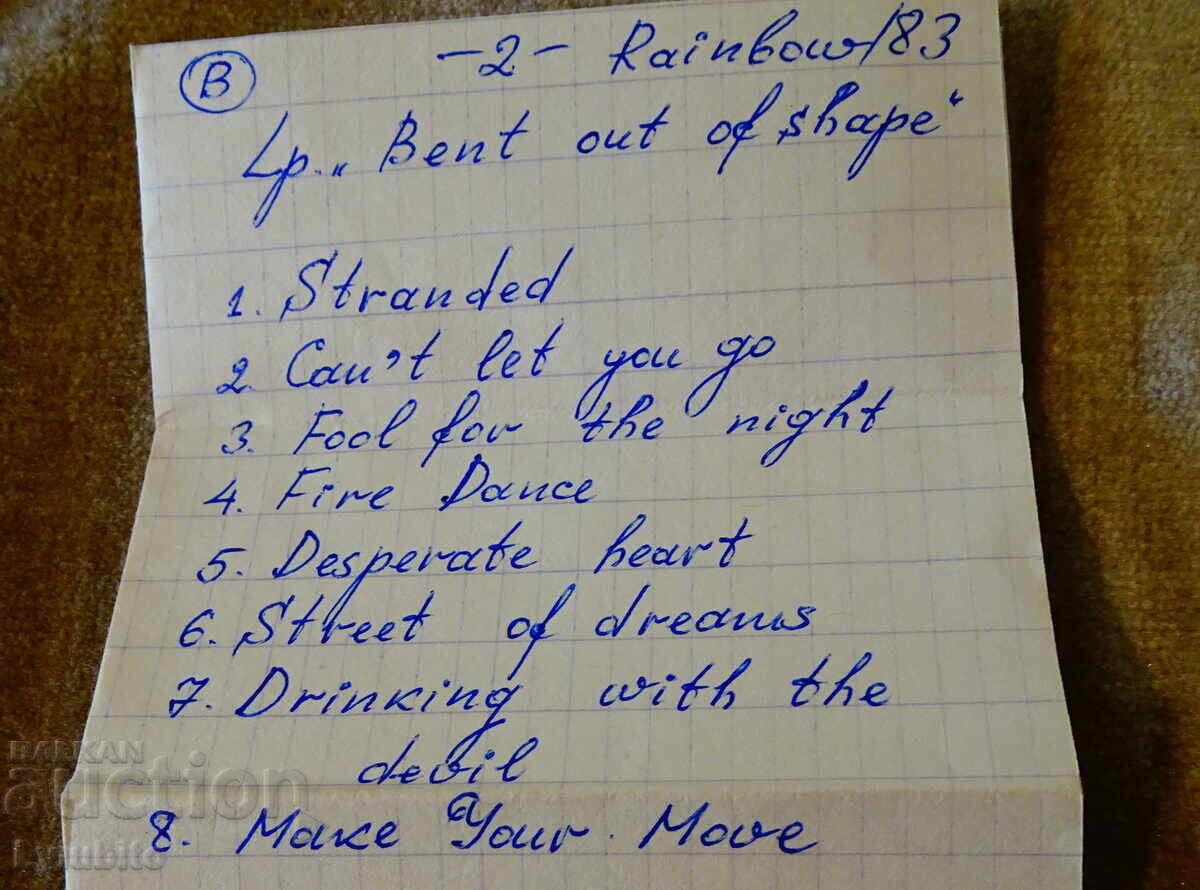 B -2- Rainbow/83
Lp. „Bent out of shape“
1. Stranded
2. Can't let you go
3. Fool for the night
4. Fire Dance
5. Desperate heart
6. Street of dreams
7. Drinking with the
devil
8. Make Your Move
BALKAN
auction
Lyubito